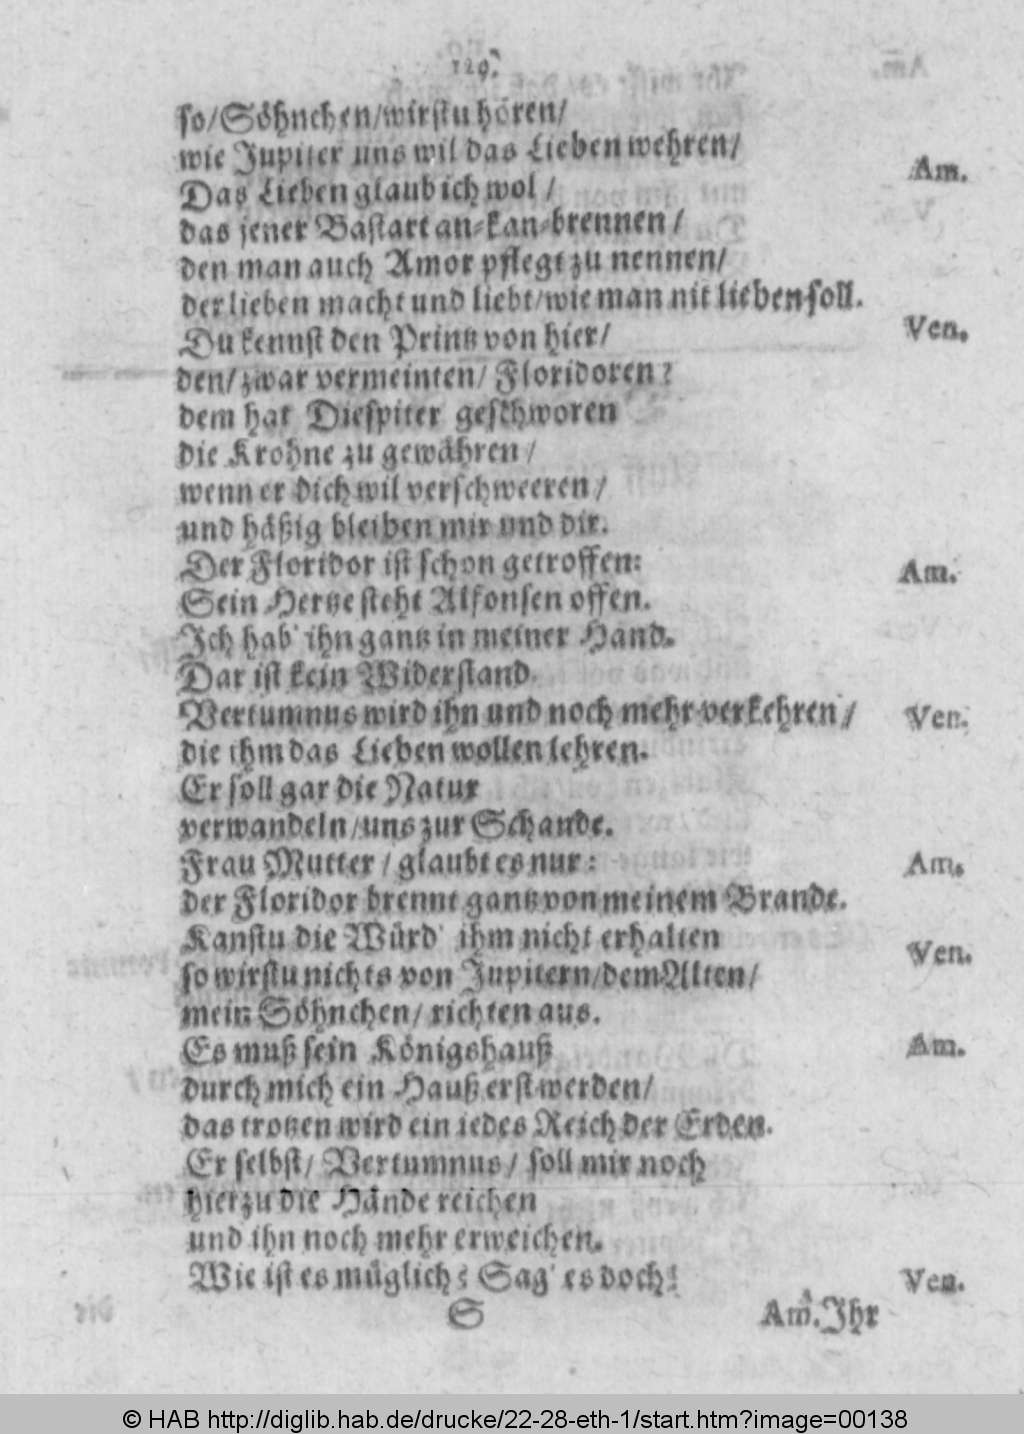 129.
so/Söhnchen/wirstu hören/
wie Jupiter uns wil das Lieben wehren/
Das Lieben glaub ich wol / Am.
das jener Bastart an-kan-brennen /
den man auch Amor pflegt zu nennen/
der lieben macht und liebt/wie man nit lieben soll.
Du kennst den Printz von hier/ Ven.
den/zwar vermeinten/ Floridoren?
dem hat Diespiter geschworen
die Krohne zu gewähren/
wenn er dich wil verschweeren /
und häßig bleiben mir und dir.
Der Floridor ist schon getroffen: Am.
Sein Hertze steht Alfonsen offen.
Ich hab' ihn gantz in meiner Hand.
Dar ist kein Widerstand.
Vertumnus wird ihn und noch mehr verkehren/ Ven.
die ihm das Lieben wollen lehren.
Er soll gar die Natur
verwandeln/uns zur Schande.
Frau Mutter / glaubt es nur: Am.
der Floridor brennt gantz von meinem Brande.
Kanstu die Würd' ihm nicht erhalten Ven.
so wirstu nichts von Jupitern/dem Alten/
mein Söhnchen/ richten aus.
Es muß sein Königshauß Am.
durch mich ein Hauß erst werden/
das trotzen wird ein iedes Reich der Erden.
Er selbst/ Vertumnus/ soll mir noch
hierzu die Hände reichen
und ihn noch mehr erweichen.
Wie ist es müglich? Sag' es doch! Ven.
S Am. Ihr
© HAB http://diglib.hab.de/drucke/22-28-eth-1/start.htm?image=00138